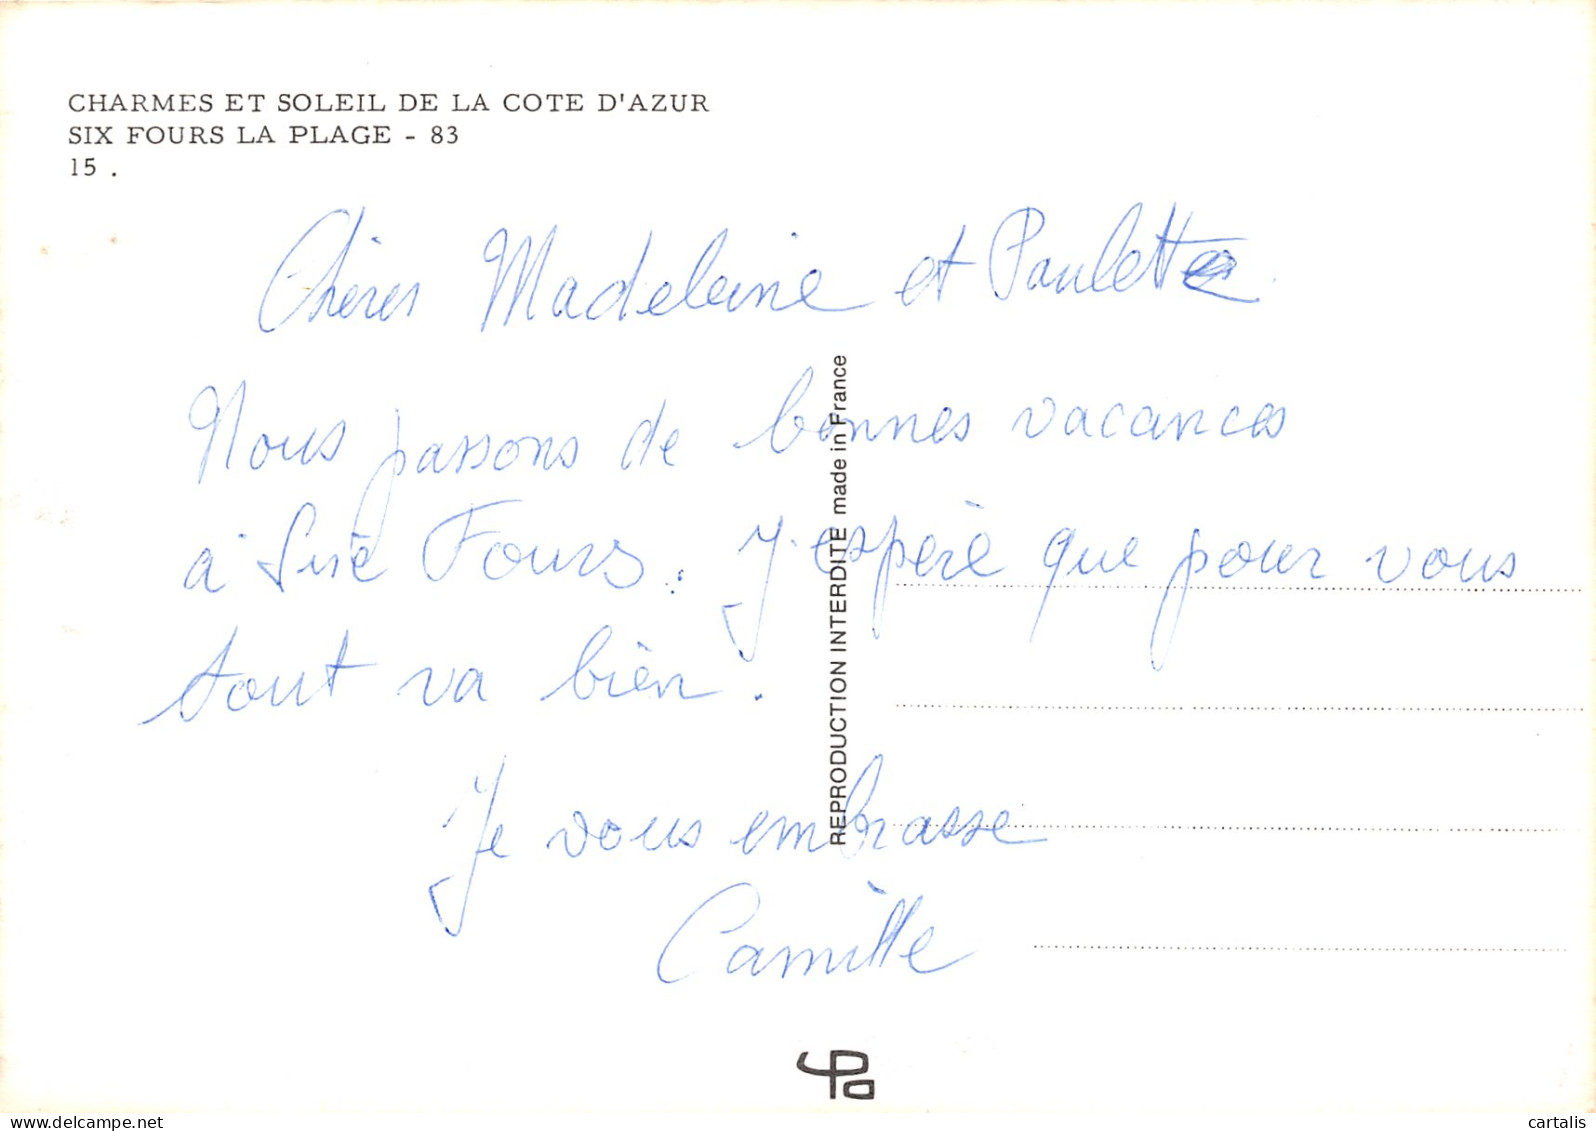 CHARMES ET SOLEIL DE LA COTE D'AZUR
SIX FOURS LA PLAGE - 83
15 .
Chères Madeleine et Paulette
Nous passons de bonnes vacances
à Six Fours. J'espère que pour vous
tout va bien.
Je vous embrasse
Camille
REPRODUCTION INTERDITE made in France
www.delcampe.net
cartalis